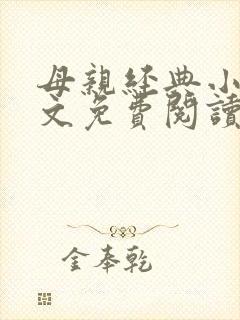 母親經典小
文免費閱讀
金奉乾